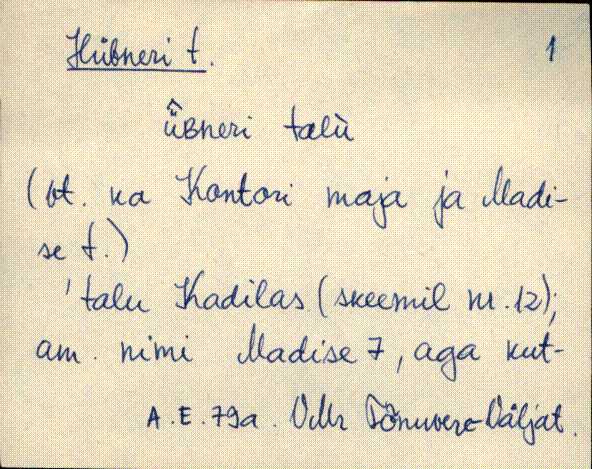 Hübneri t. 1
ü̂ʙneri talù
(vt. ka Kontori maja ja Madi-
se t.)
'talu Kadilas (skeemil nr. 12);
am. nimi Madise 7, aga kut-
A.E. 79a. VMr Tõnuvere-Väljat.